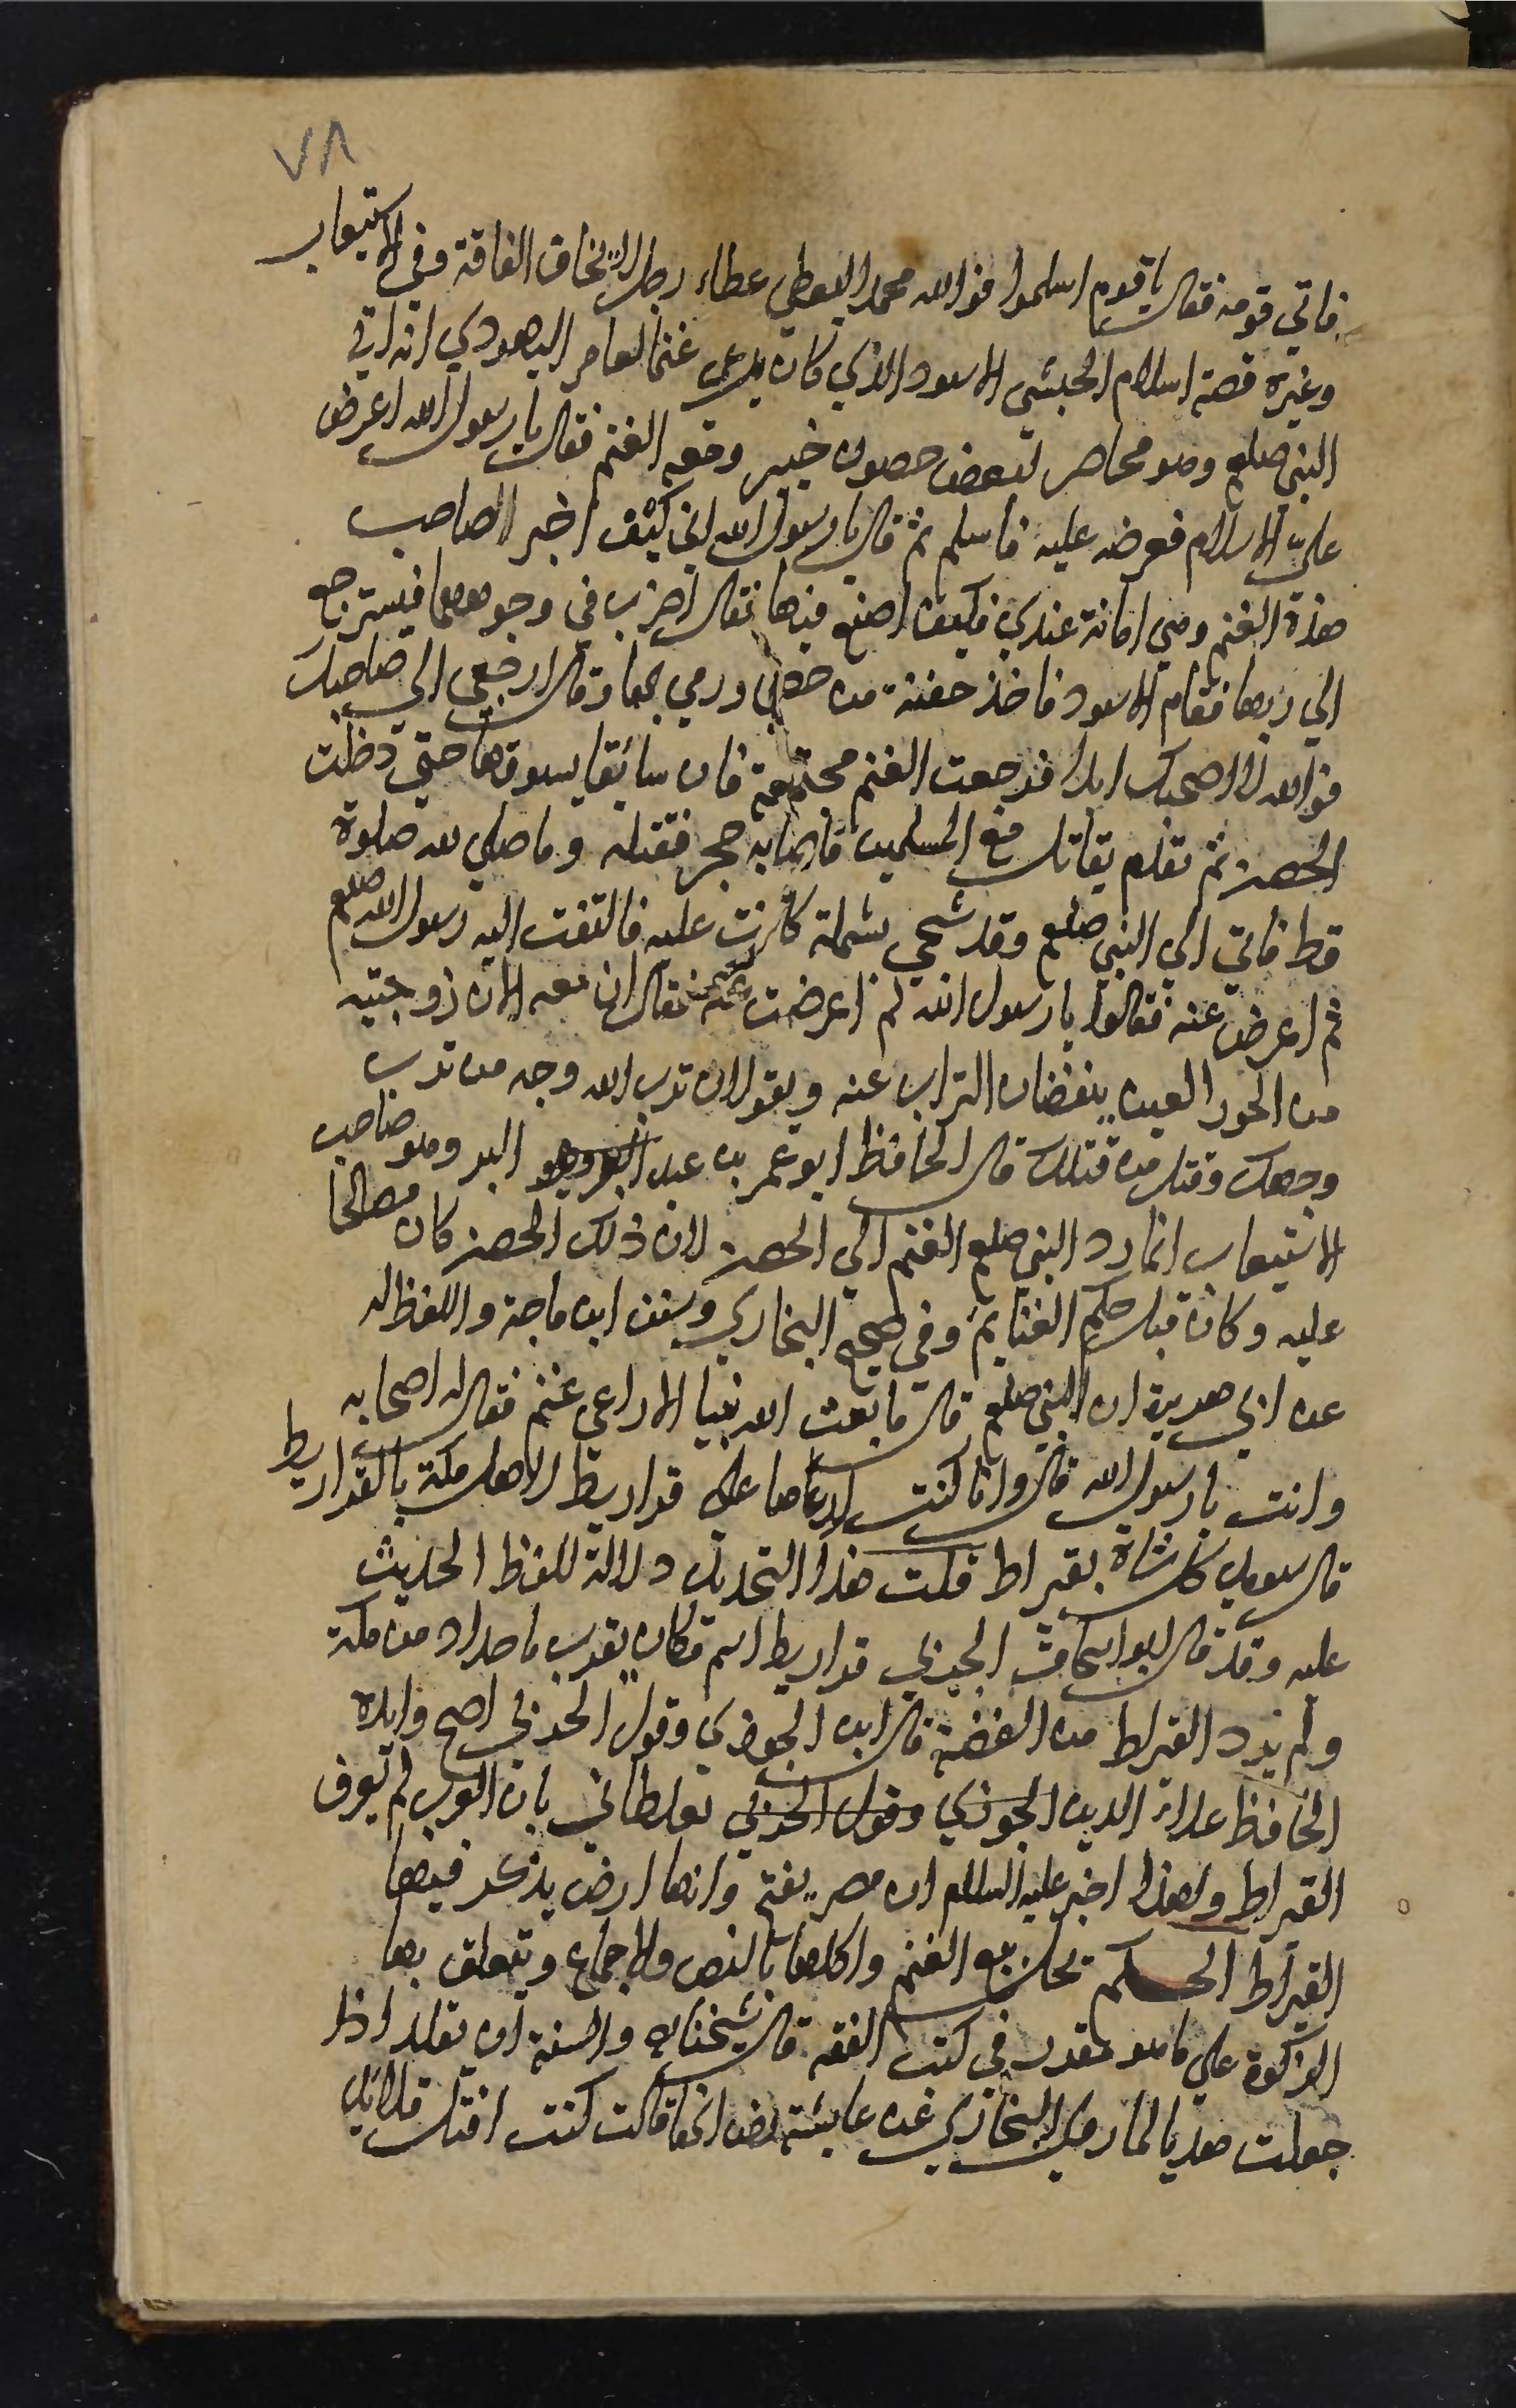 ٧٨
فاتي قومه فقال يا قوم اسلموا فوالله محمد اليعطي عطاء رجل لا يخاف الفاقة وفي الاستيعاب
وغيره قصة اسلام الحبشي الاسود الذي كان يرعى غنما لعامر اليهودي انه اتي
النبي صلعم وهو محاصر لبعض حصون خيبر ومعه الغنم فقال يا رسول الله اعرض
علي الاسلام فعرضه عليه فاسلم ثم قال يا رسول الله اني كنت اخبر الصاحب
هذه الغنم وهي امانة عندي فكيف اصنع فيها فقال اضرب في وجوهها فيسترجع
الي ربها فقام الاسود فاخذ حفنة من حصى ورمي بها وقال ارجعي الي صاحبك
فوالله لا اصحبك ابدا فرجعت الغنم مجتمعة فان سائقا يسوقها حتي دخلت
الحصن ثم تقدم يقاتل مع المسلمين فاصابه حجر فقتله وما صلي لله صلوة
قط فاتي الي النبي صلعم وقد سجي بشملة كانت عليه فالتفت اليه رسول الله صلعم
ثم اعرض عنه فقالوا يا رسول الله لم اعرضت عنه فقال ان معه الان زوجتيه
من الحور العين ينفضان التراب عنه ويقولان ترب الله وجه من ترب
وجهك وقتل من قتلك قال الحافظ ابو عمر بن عبد البر وهو البر وهو صاحب
الاستيعاب انما رد النبي صلعم الغنم الي الحصن لان ذلك الحصن كان مصالحا
عليه وكان قبل حكم الغنايم وفي صحيح البخاري وسنن ابن ماجة واللفظ له
عن ابي هريرة ان النبي صلعم قال ما بعث الله نبيا الا راعي غنم فقال له اصحابه
وانت يا رسول الله قال وانا كنت لارعاها على قراريط لاهل مكة بالقراريط
قال سويد كل شاة بقيراط قلت هذا التحديد دلالة للفظ الحديث
عليه وقد قال ابو اسحاق الحربي قراريط اسم مكان يقرب ما حداد من مكة
ولم يرد القيراط من الفضة قال ابن الجوزي وقول الحربي اصح وايده
الحافظ علاء الدين الجوزي وقول الحربي مغلطاني بان العرب لم تعرف
القيراط ولهذا اخبر عليه السلام ان مصر يفتح وانها ارض يذكر فيها
القيراط الحكم تحل بيع الغنم واكلها بالنص والاجماع وتتعلق بها
الزكوة علي ما هو مقدر في كتب الفقه قال شيخنا والسنة ان يقلد اذا
جعلت هديا لما روي البخاري عن عايشة رض انها قالت كنت افتل قلائد